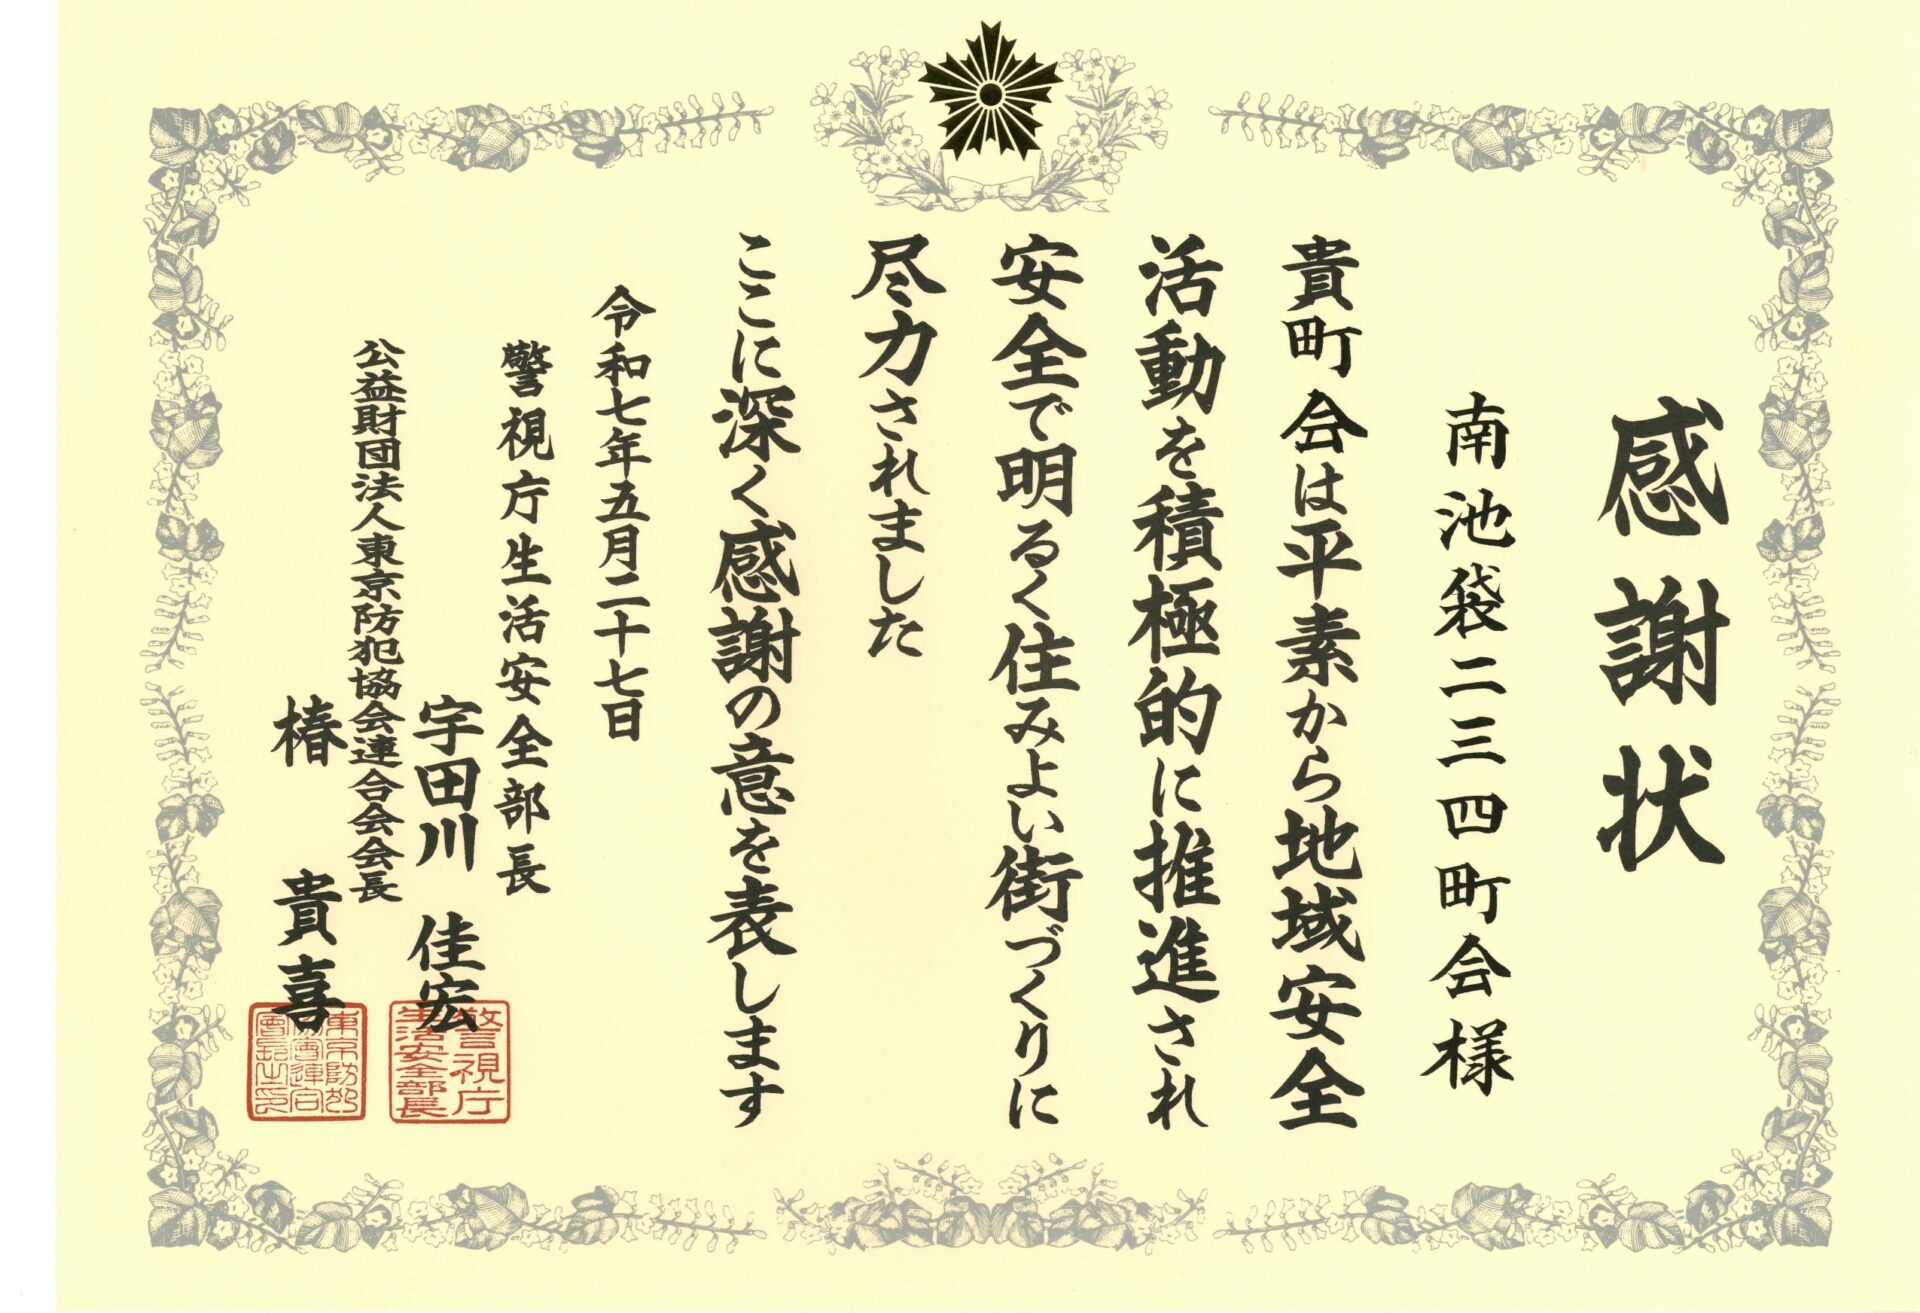 感謝状
南池袋二三四町会様
貴町会は平素から地域安全
活動を積極的に推進され
安全で明るく住みよい街づくりに
尽力されました
ここに深く感謝の意を表します
令和七年五月二十七日
警視庁生活安全部長
宇田川 佳宏
公益財団法人東京防犯協会連合会会長
椿 貴喜
警視庁
生活安全部長
東京防犯
協會連合
會長之印